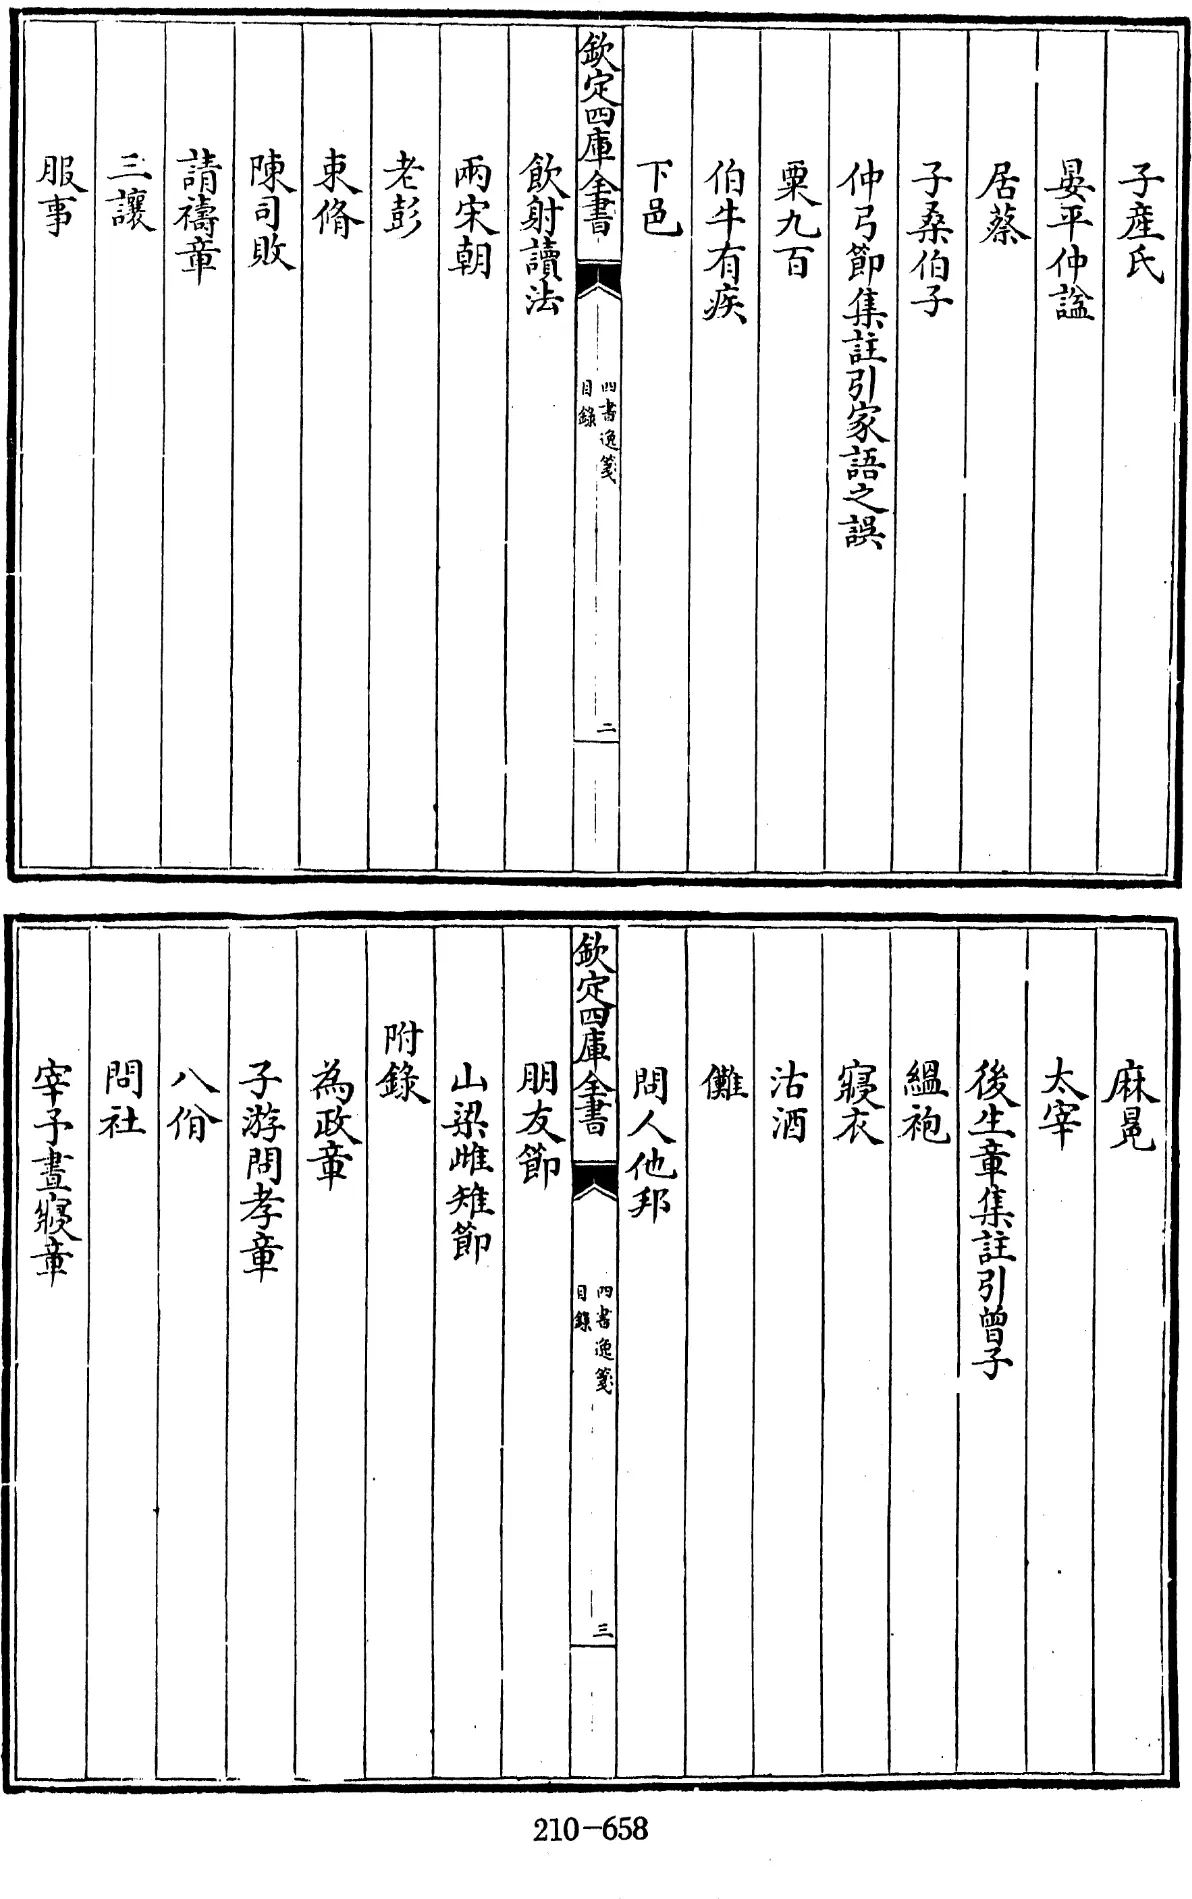 子產氏
晏平仲諡
居蔡
子桑伯子
仲弓節集註引家語之誤
粟九百
伯牛有疾
下邑
欽定四庫全書
四書逸箋
目錄
二
飲射讀法
兩宋朝
老彭
束脩
陳司敗
請禱章
三讓
服事
麻冕
太宰
後生章集註引曾子
縕袍
寢衣
沽酒
儺
問人他邦
欽定四庫全書
四書逸箋
目錄
三
朋友節
山梁雌雉節
附錄
為政章
子游問孝章
八佾
問社
宰子晝寢章
210-658